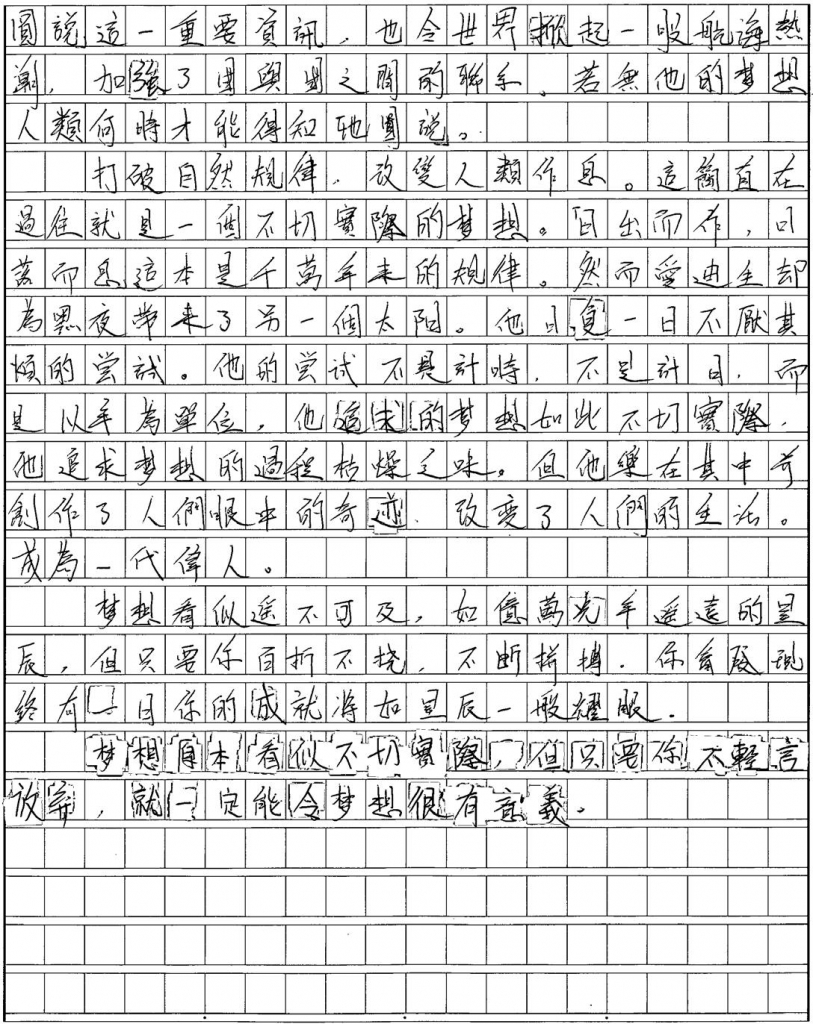 圓說這一重要資訊，也令世界掀起一股航海熱
潮，加強了國與國之間的聯系，若無他的梦想
人類何時才能得知地圓說。
打破自然規律，改變人類作息。這簡直在
過往就是一個不切實際的梦想。日出而作，日
落而息這本是千萬年来的規律。然而愛迪生却
為黑夜帶来了另一個太阳。他日復一日不厭其
煩的尝試。他的尝试不是計時，不是計日，而
是以年為單位，他追求的梦想如此不切實際，
他追求梦想的過程枯燥乏味。但他樂在其中
創作了人們眼中的奇迹，改变了人們的生活。
成為一代偉人。
梦想看似遥不可及，如億萬光年遥遠的星
辰，但只要你百折不挠，不断拼搏，你會發現
終有一日你的成就将如星辰一般耀眼。
梦想自本看似不切實際，但只要你不輕言
放弃，就一定能令梦想很有意義。